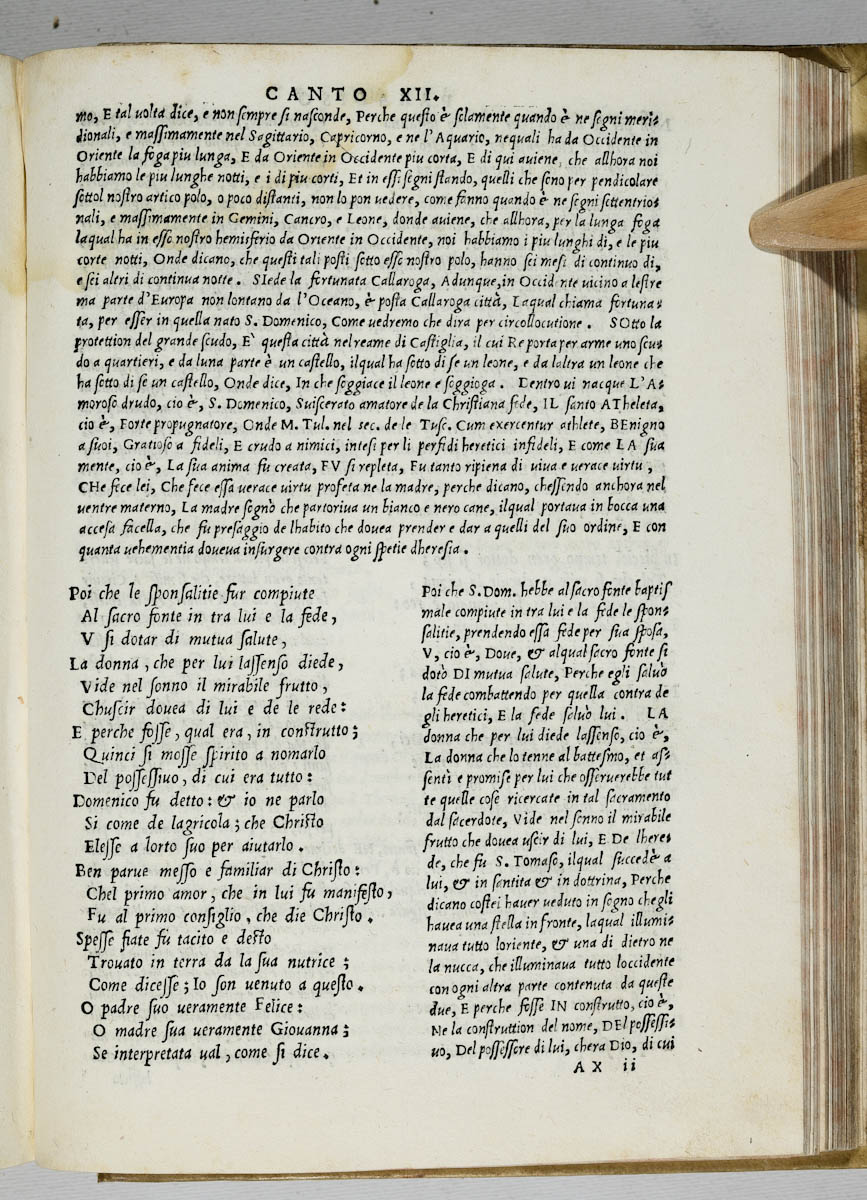 CANTO XII.
mo, E tal uolta dice, e non sempre si nasconde, Perche questo è solamente quando è ne segni meri-
dionali, e massimamente nel Sagittario, Capricorno, e ne l'Aquario, nequali ha da Occidente in
Oriente la foga piu lunga, E da Oriente in Occidente piu corta, E di qui auiene, che allhora noi
habbiamo le piu lunghe notti, e i di piu corti, Et in essi segni stando, quelli che sono per pendicolare
sottol nostro artico polo, o poco distanti, non lo pon uedere, come fanno quando è ne segni settentrio-
nali, e massimamente in Gemini, Cancro, e Leone, donde auiene, che allhora, per la lunga foga
laqual ha in esso nostro hemisferio da Oriente in Occidente, noi habbiamo i piu lunghi di, e le piu
corte notti, Onde dicano, che questi tali posti sotto esso nostro polo, hanno sei mesi di continuo di,
e sei altri di continua notte. SIede la fortunata Callaroga, Adunque, in Occidente uicino a lestre
ma parte d'Europa non lontano da l'Oceano, è posta Callaroga città, Laqual chiama fortuna-
ta, per esser in quella nato S. Domenico, Come uedremo che dira per circollocutione. SOtto la
protettion del grande scudo, E' questa città nel reame di Castiglia, il cui Re porta per arme uno scu-
do a quartieri, e da luna parte è un castello, ilqual ha sotto di se un leone, e da laltra un leone che
ha sotto di se un castello, Onde dice, In che soggiace il leone e soggioga. Dentro ui nacque L'A-
moroso drudo, cio è, S. Domenico, Suiscerato amatore de la Christiana fede, IL santo ATheleta,
cio è, Forte propugnatore, Onde M. Tul. nel sec. de le Tusc. Cum exercentur athlete, BEnigno
a suoi, Gratioso a fideli, E crudo a nimici, intesi per li perfidi heretici infideli, E come LA sua
mente, cio è, La sua anima fu creata, FV si repleta, Fu tanto ripiena di uiua e uerace uirtu,
CHe fece lei, Che fece essa uerace uirtu profeta ne la madre, perche dicano, chessendo anchora nel
uentre materno, La madre segnò che partoriua un bianco e nero cane, ilqual portaua in bocca una
accesa facella, che fu presaggio de lhabito che douea prender e dar a quelli del suo ordine, E con
quanta uehementia doueua insurgere contra ogni spetie dheresia.
Poi che le sponsalitie fur compiute
Al sacro fonte in tra lui e la fede,
V si dotar di mutua salute,
La donna, che per lui lassenso diede,
Vide nel sonno il mirabile frutto,
Chuscir douea di lui e de le rede:
E perche fosse, qual era, in construtto;
Quinci si mosse spirito a nomarlo
Del possessiuo, di cui era tutto:
Domenico fu detto: & io ne parlo
Si come de lagricola; che Christo
Elesse a lorto suo per aiutarlo.
Ben parue messo e familiar di Christo:
Chel primo amor, che in lui fu manifesto,
Fu al primo consiglio, che die Christo.
Spesse fiate fu tacito e desto
Trouato in terra da la sua nutrice;
Come dicesse; Io son uenuto a questo.
O padre suo ueramente Felice:
O madre sua ueramente Giouanna;
Se interpretata ual, come si dice.
Poi che S. Dom. hebbe al sacro fonte baptis
male compiute in tra lui e la fede le spon-
salitie, prendendo essa fede per sua sposa,
V, cio è, Doue, & alqual sacro fonte si
dotò DI mutua salute, Perche egli saluò
la fede combattendo per quella contra de
gli heretici, E la fede saluò lui. LA
donna che per lui diede lassenso, cio è,
La donna che lo tenne al battesmo, et as-
sentì e promise per lui che osseruerebbe tut
te quelle cose ricercate in tal sacramento
dal sacerdote, Vide nel sonno il mirabile
frutto che douea uscir di lui, E De lhere-
de, che fu S. Tomaso, ilqual succedè a
lui, & in santita & in dottrina, Perche
dicano costei hauer ueduto in sogno chegli
hauea una stella in fronte, laqual illumi-
naua tutto loriente, & una di dietro ne
la nucca, che illuminaua tutto loccidente
con ogni altra parte contenuta da queste
due, E perche fosse IN construtto, cio è,
Ne la construttion del nome, DEl possessi-
uo, Del possessore di lui, chera Dio, di cui
AX ii